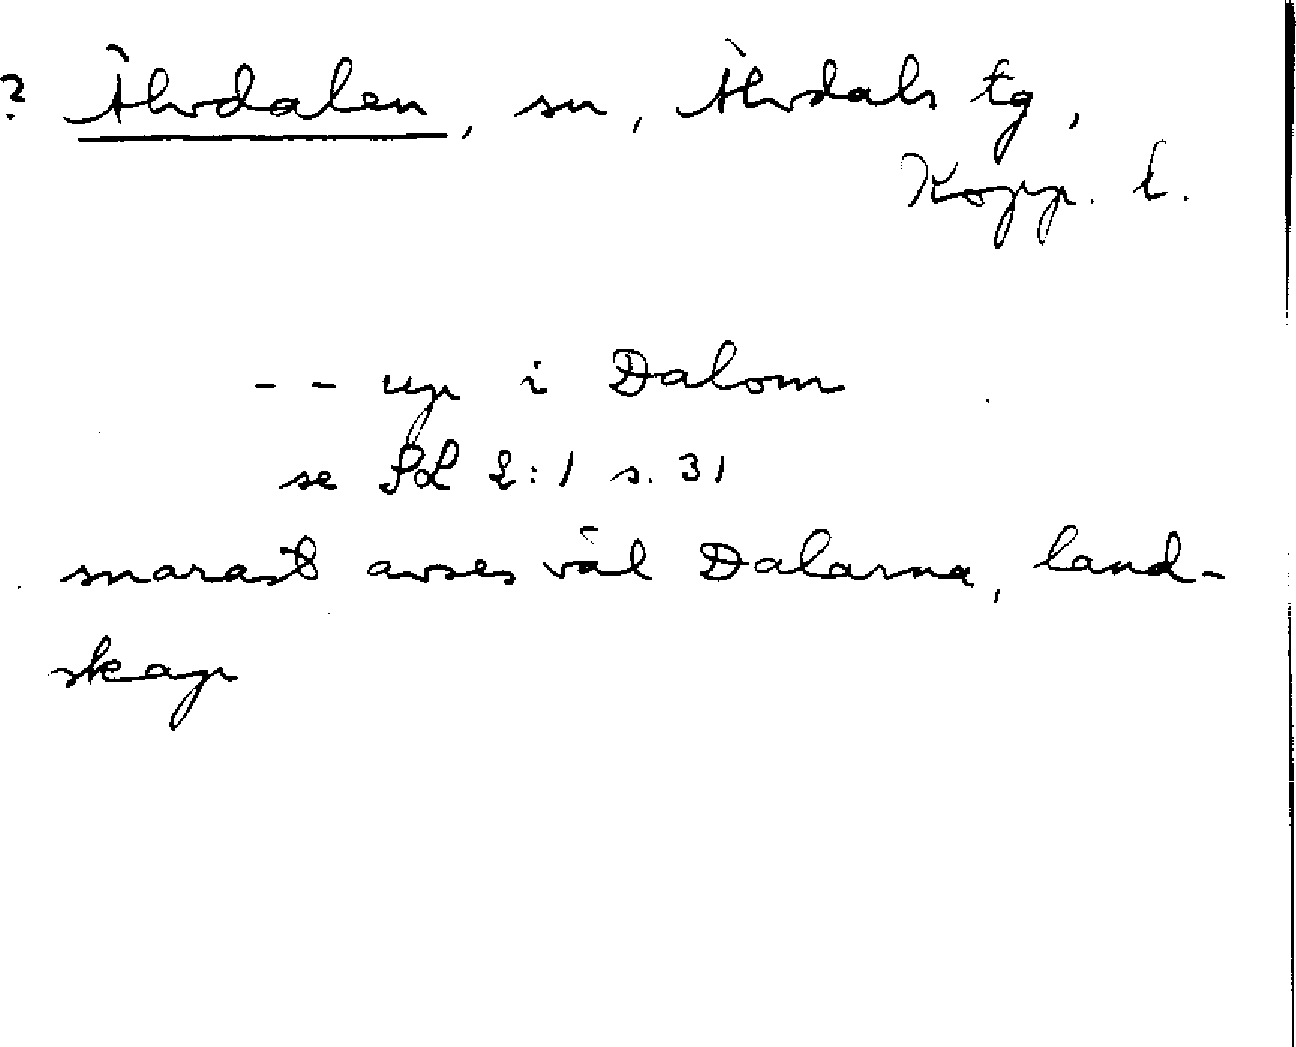 ? Älvdalen, sn, Älvdals tg,
Kopp. l.
-- up i Dalom
se SL 2:1 s. 31
snarast avses väl Dalarna, land-
skap